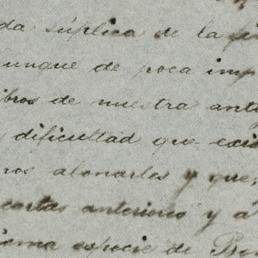 da súplica de la
unque de poca imp
ibros de nuestra ant
dificultad que exis
nos abonarles y que,
cartas anteriores y á
isma especie de Bon